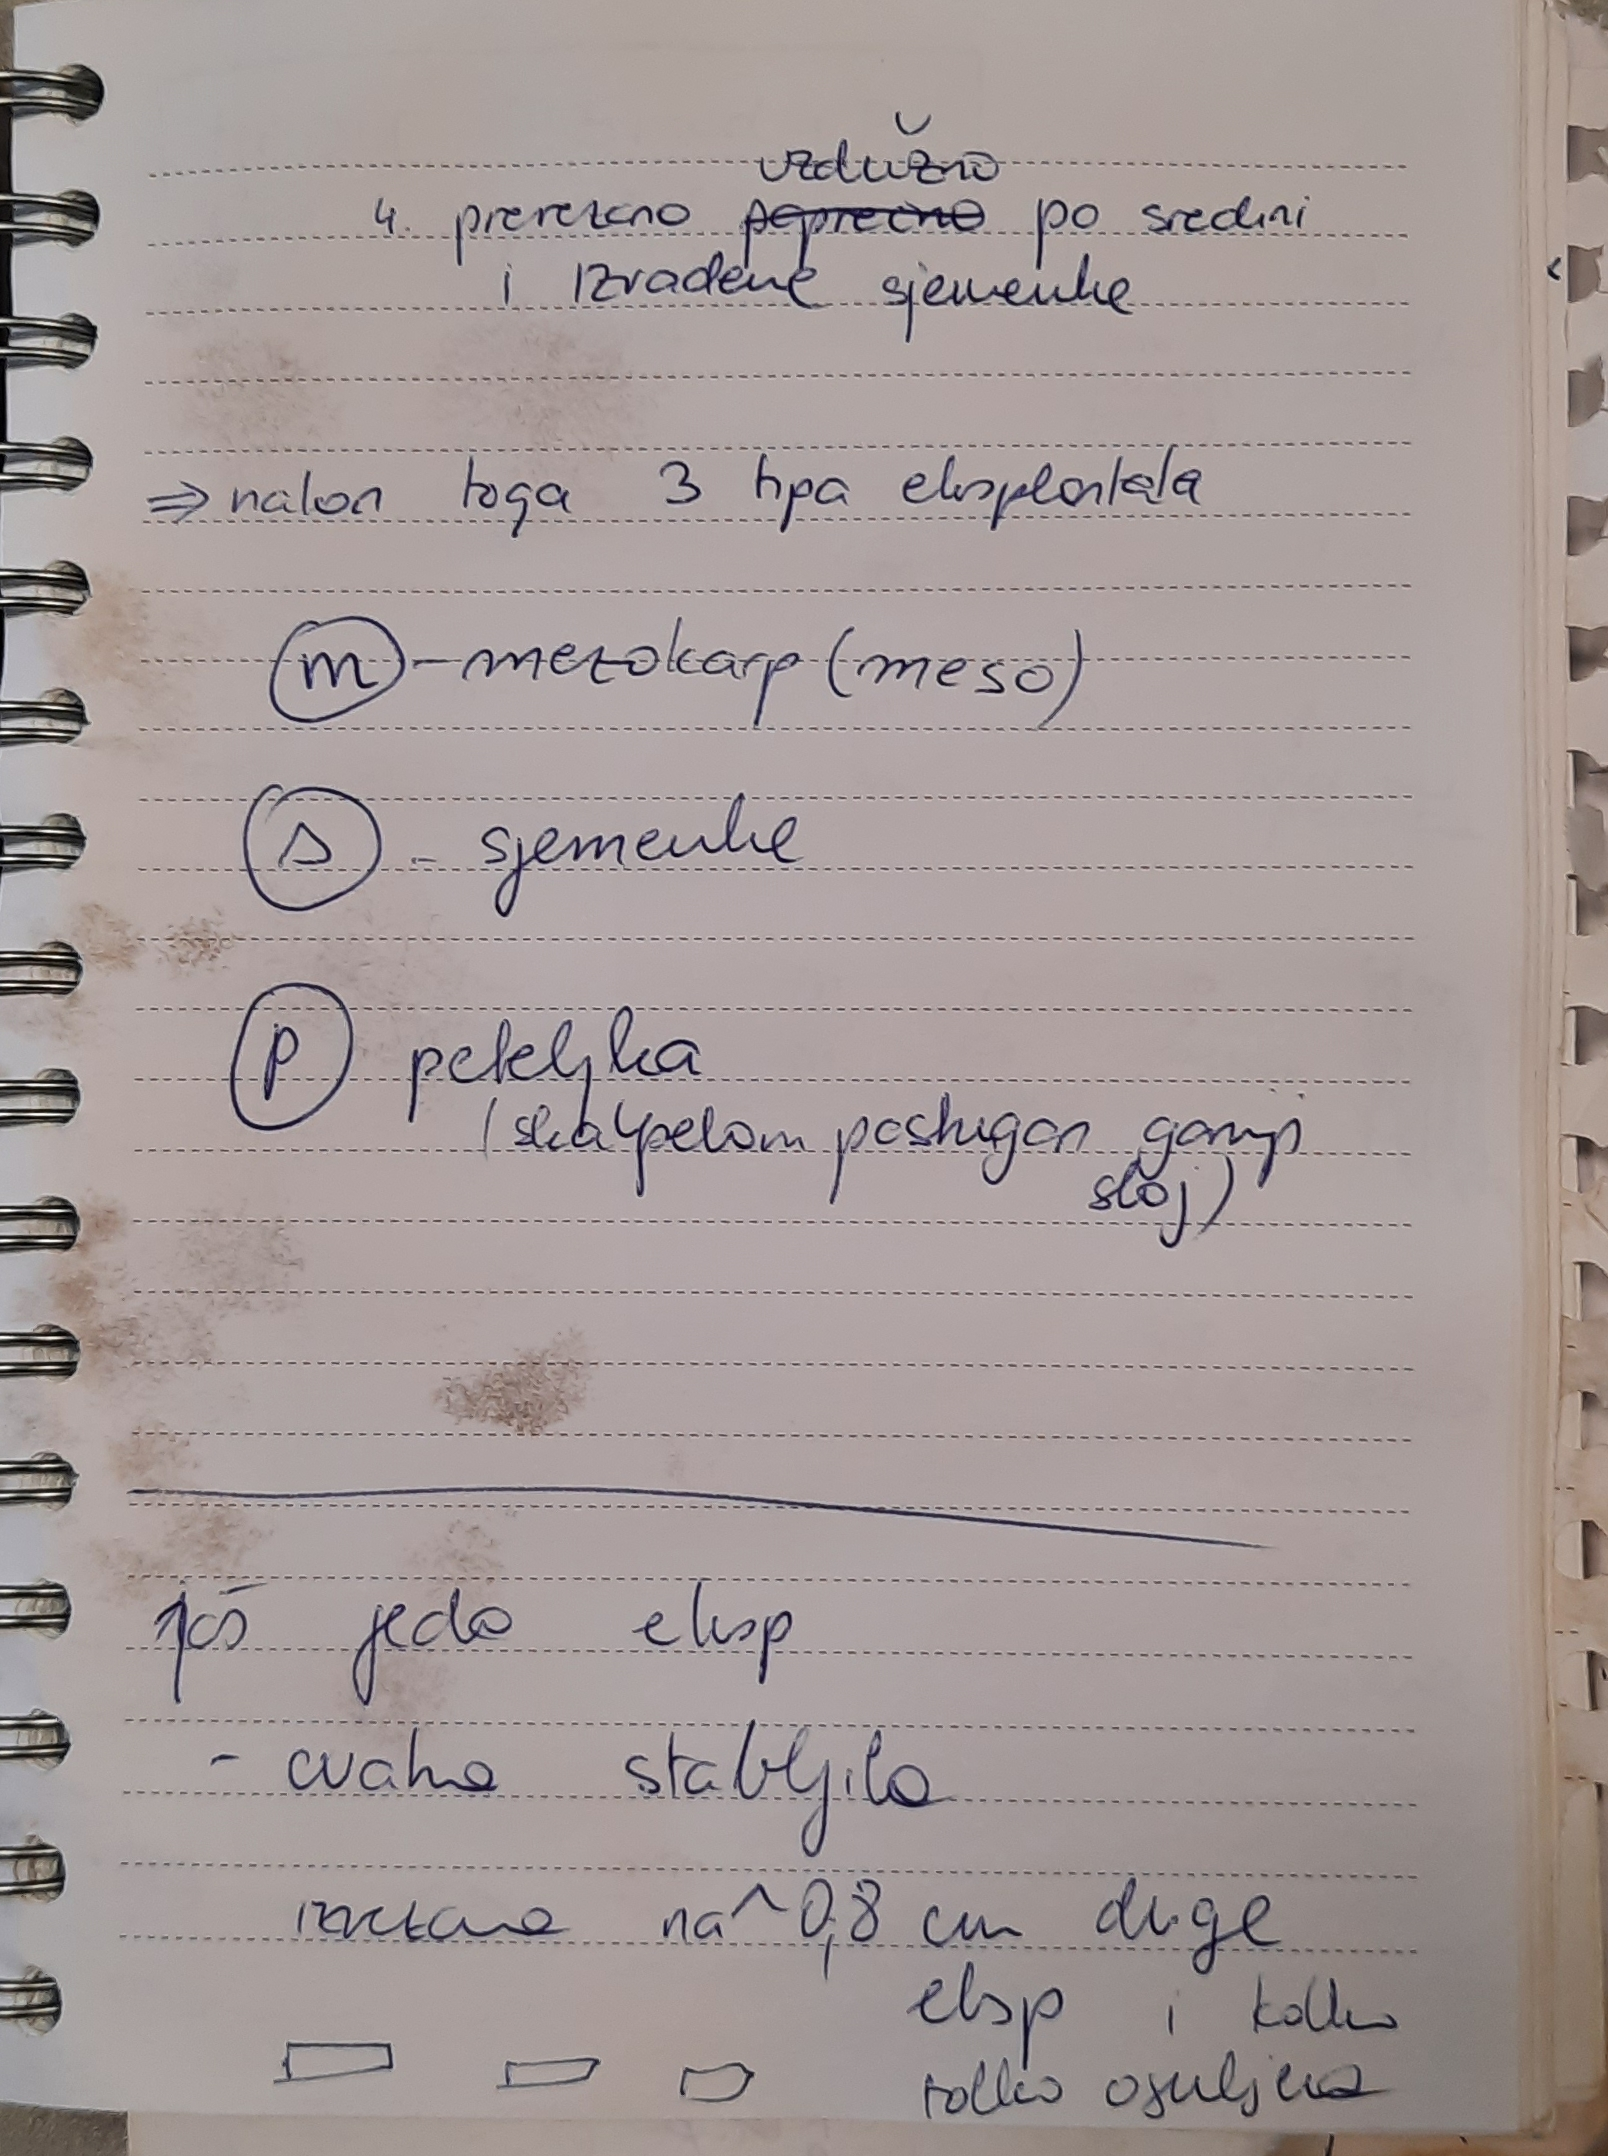 vzdužno
4. prerezano poprečno po sredini
i izvađene sjemenke
⇒ nakon toga 3 tipa eksplantata
m - mezokarp (meso)
s - sjemenke
p peteljka
(skalpelom postrugan gornji
sloj)
još jedo eksp
- cvatna stabljika
izrezana na ~ 0,8 cm duge
eksp i kolko
tolko oguljena